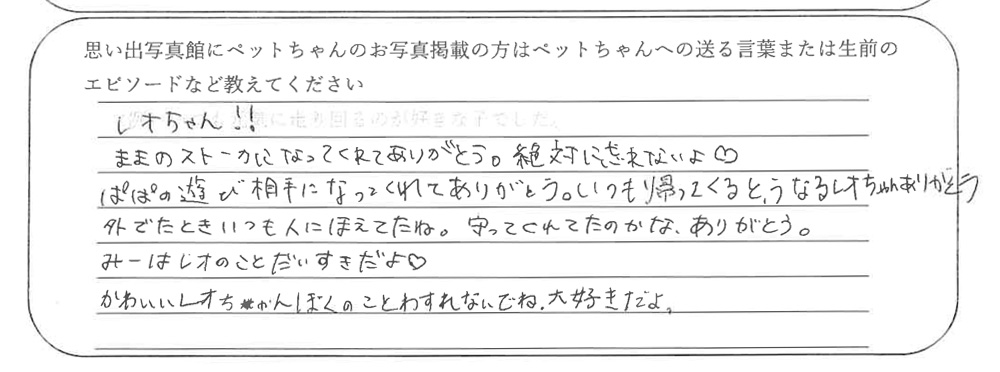 思い出写真館にペットちゃんのお写真掲載の方はペットちゃんへの送る言葉または生前の
エピソードなど教えてください
レオちゃん!!
ままのストーカーになってくれてありがとう。絶対に忘れないよ♡
ぱぱの遊び相手になってくれてありがとう。いつも帰ってくると、うなるレオちゃんありがとう
外でたときいつも人にほえてたね。守ってくれてたのかな、ありがとう。
みーはレオのことだいすきだよ♡
かわいいレオちゃんぼくのことわすれないでね、大好きだよ。